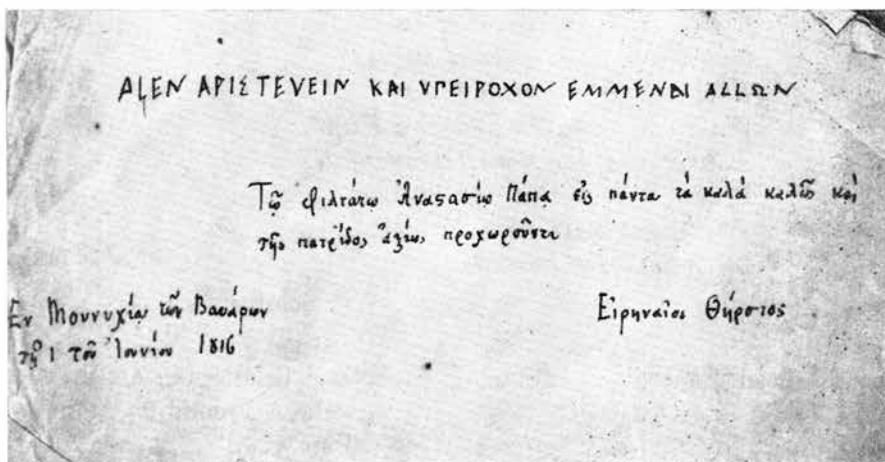 ΑΙΕΝ ΑΡΙΣΤΕΥΕΙΝ ΚΑΙ ΥΠΕΙΡΟΧΟΝ ΕΜΜΕΝΑΙ ΑΛΛΩΝ
Τῷ φιλτάτῳ Ἀναςασίῳ Πάπα εἰς πάντα τὰ καλὰ καλῶς καὶ
τῆς πατρίδος ἀξίως προχωροῦντι
Ἐν Μουνυχίᾳ τῶν Βαυάρων
τῇ 1 τοῦ Ἰουνίου 1816
Εἰρηναῖος Θήρσιος